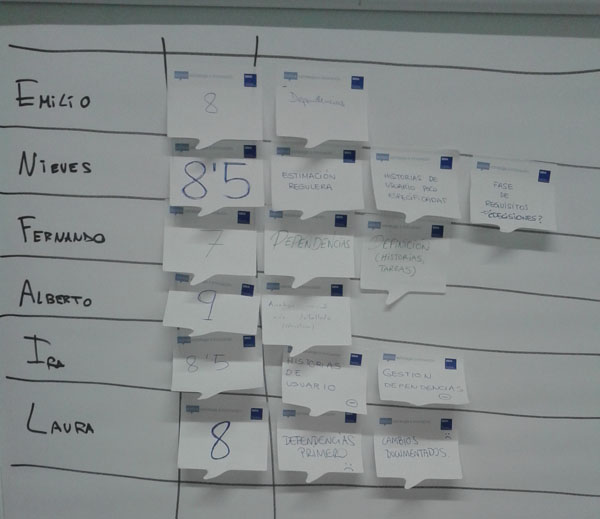 EMILIO
8
- Dependencias
NIEVES
8'5
ESTIMACIÓN
REGULERA
HISTORIAS DE
USUARIO POCO
FASE
DE
REQUISITOS
FERNANDO
7
DEPENDENCIAS
DEFINICIÓN
(HISTORIAS,
TAREAS)
ALBERTO
9
IRA
8'5
HISTORIAS
DE
USUARIO
GESTION
DEPENDENCIAS
LAURA
8
DEPENDENCIAS
PRIMER
CAMBIOS
DOCUMENTADOS.